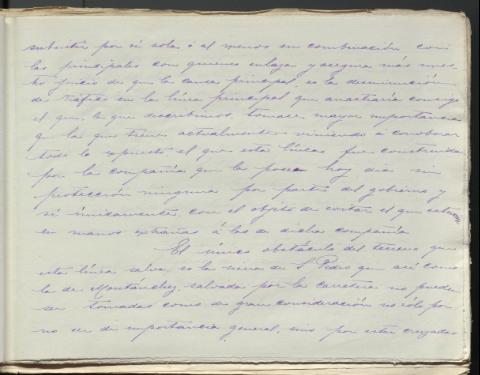 subsistir por sí sola o al menos en combinación con
las principales con quienes enlaza y asegura más nues
tro juicio de que la causa principal, es la disminución
de tráfico en la línea principal que arrastraría consigo
el que, la que describimos, tomase mayor importancia
que la que tiene actualmente viniendo a corroborar
todo lo expuesto el que esta línea fue construida
por la compañía que la posee hoy día sin
protección ninguna por parte del gobierno y
sí únicamente, con el objeto de evitar el que
en manos extrañas á las de dicha compañía
El único obstáculo del terreno que
esta línea salva, es la sierra de S. Pedro que así como
la de Montánchez, salvada por la carretera no puede
ser tomadas como de gran consideración no sólo por
no ser de importancia general, sino por estar cruzadas